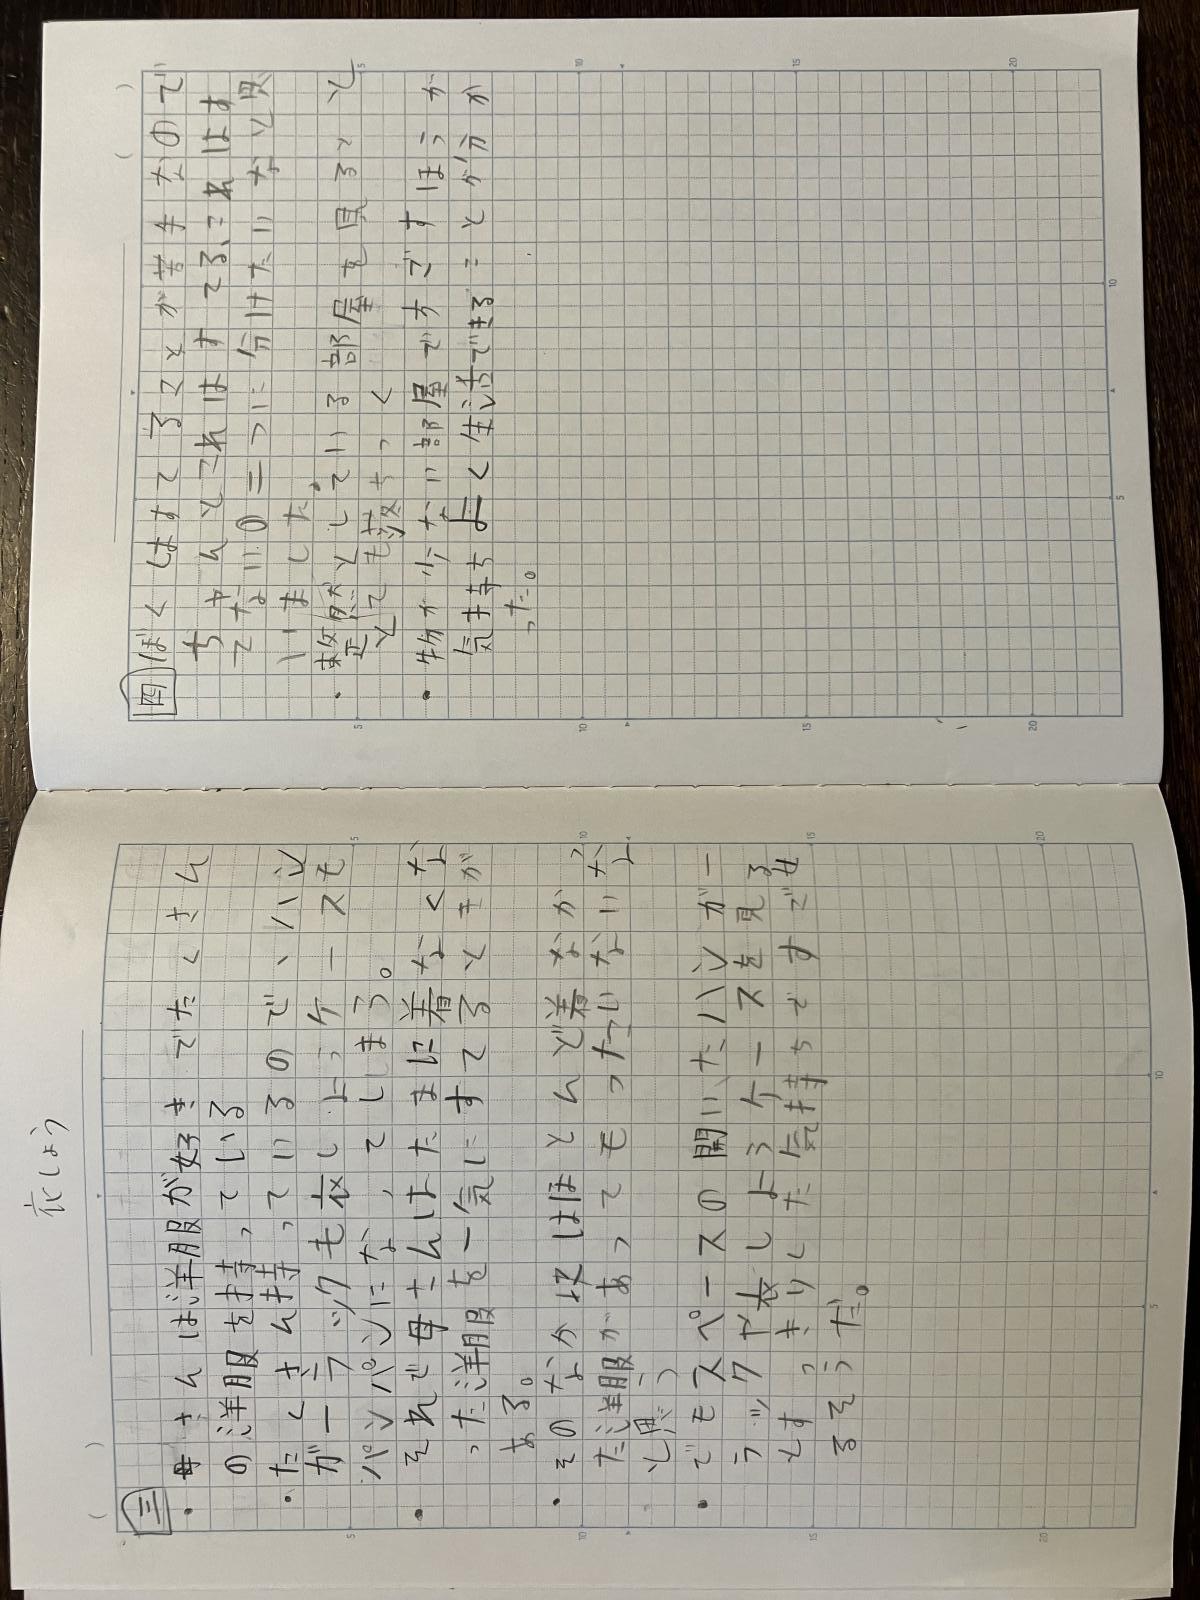 衣しょう
三
・母さんは洋服が好きでたくさん
の洋服を持っている
・たくさん持っているので、ハン
ガーラックも衣しょうケースも
パンパンになってしまう。
・それで母さんはたまに着なくな
った洋服を一気にすてるときが
ある。
・そのなかにはほとんど着なかっ
た洋服があってもったいないなぁ
と思う
・でもスペースの開いたハンガー
ラックや衣しょうケースを見る
とすっきりした気持ちですごせ
るそうだ。
四
ぼくはすてることが苦手なので
ちゃんとこれはすてる、これはす
てないの二つに分けたいなと思
いました。
・整然としている部屋を見ると
とても落ちつく
・物が少ない部屋ですごすほうが
気持ちよく生活できることが分か
った。